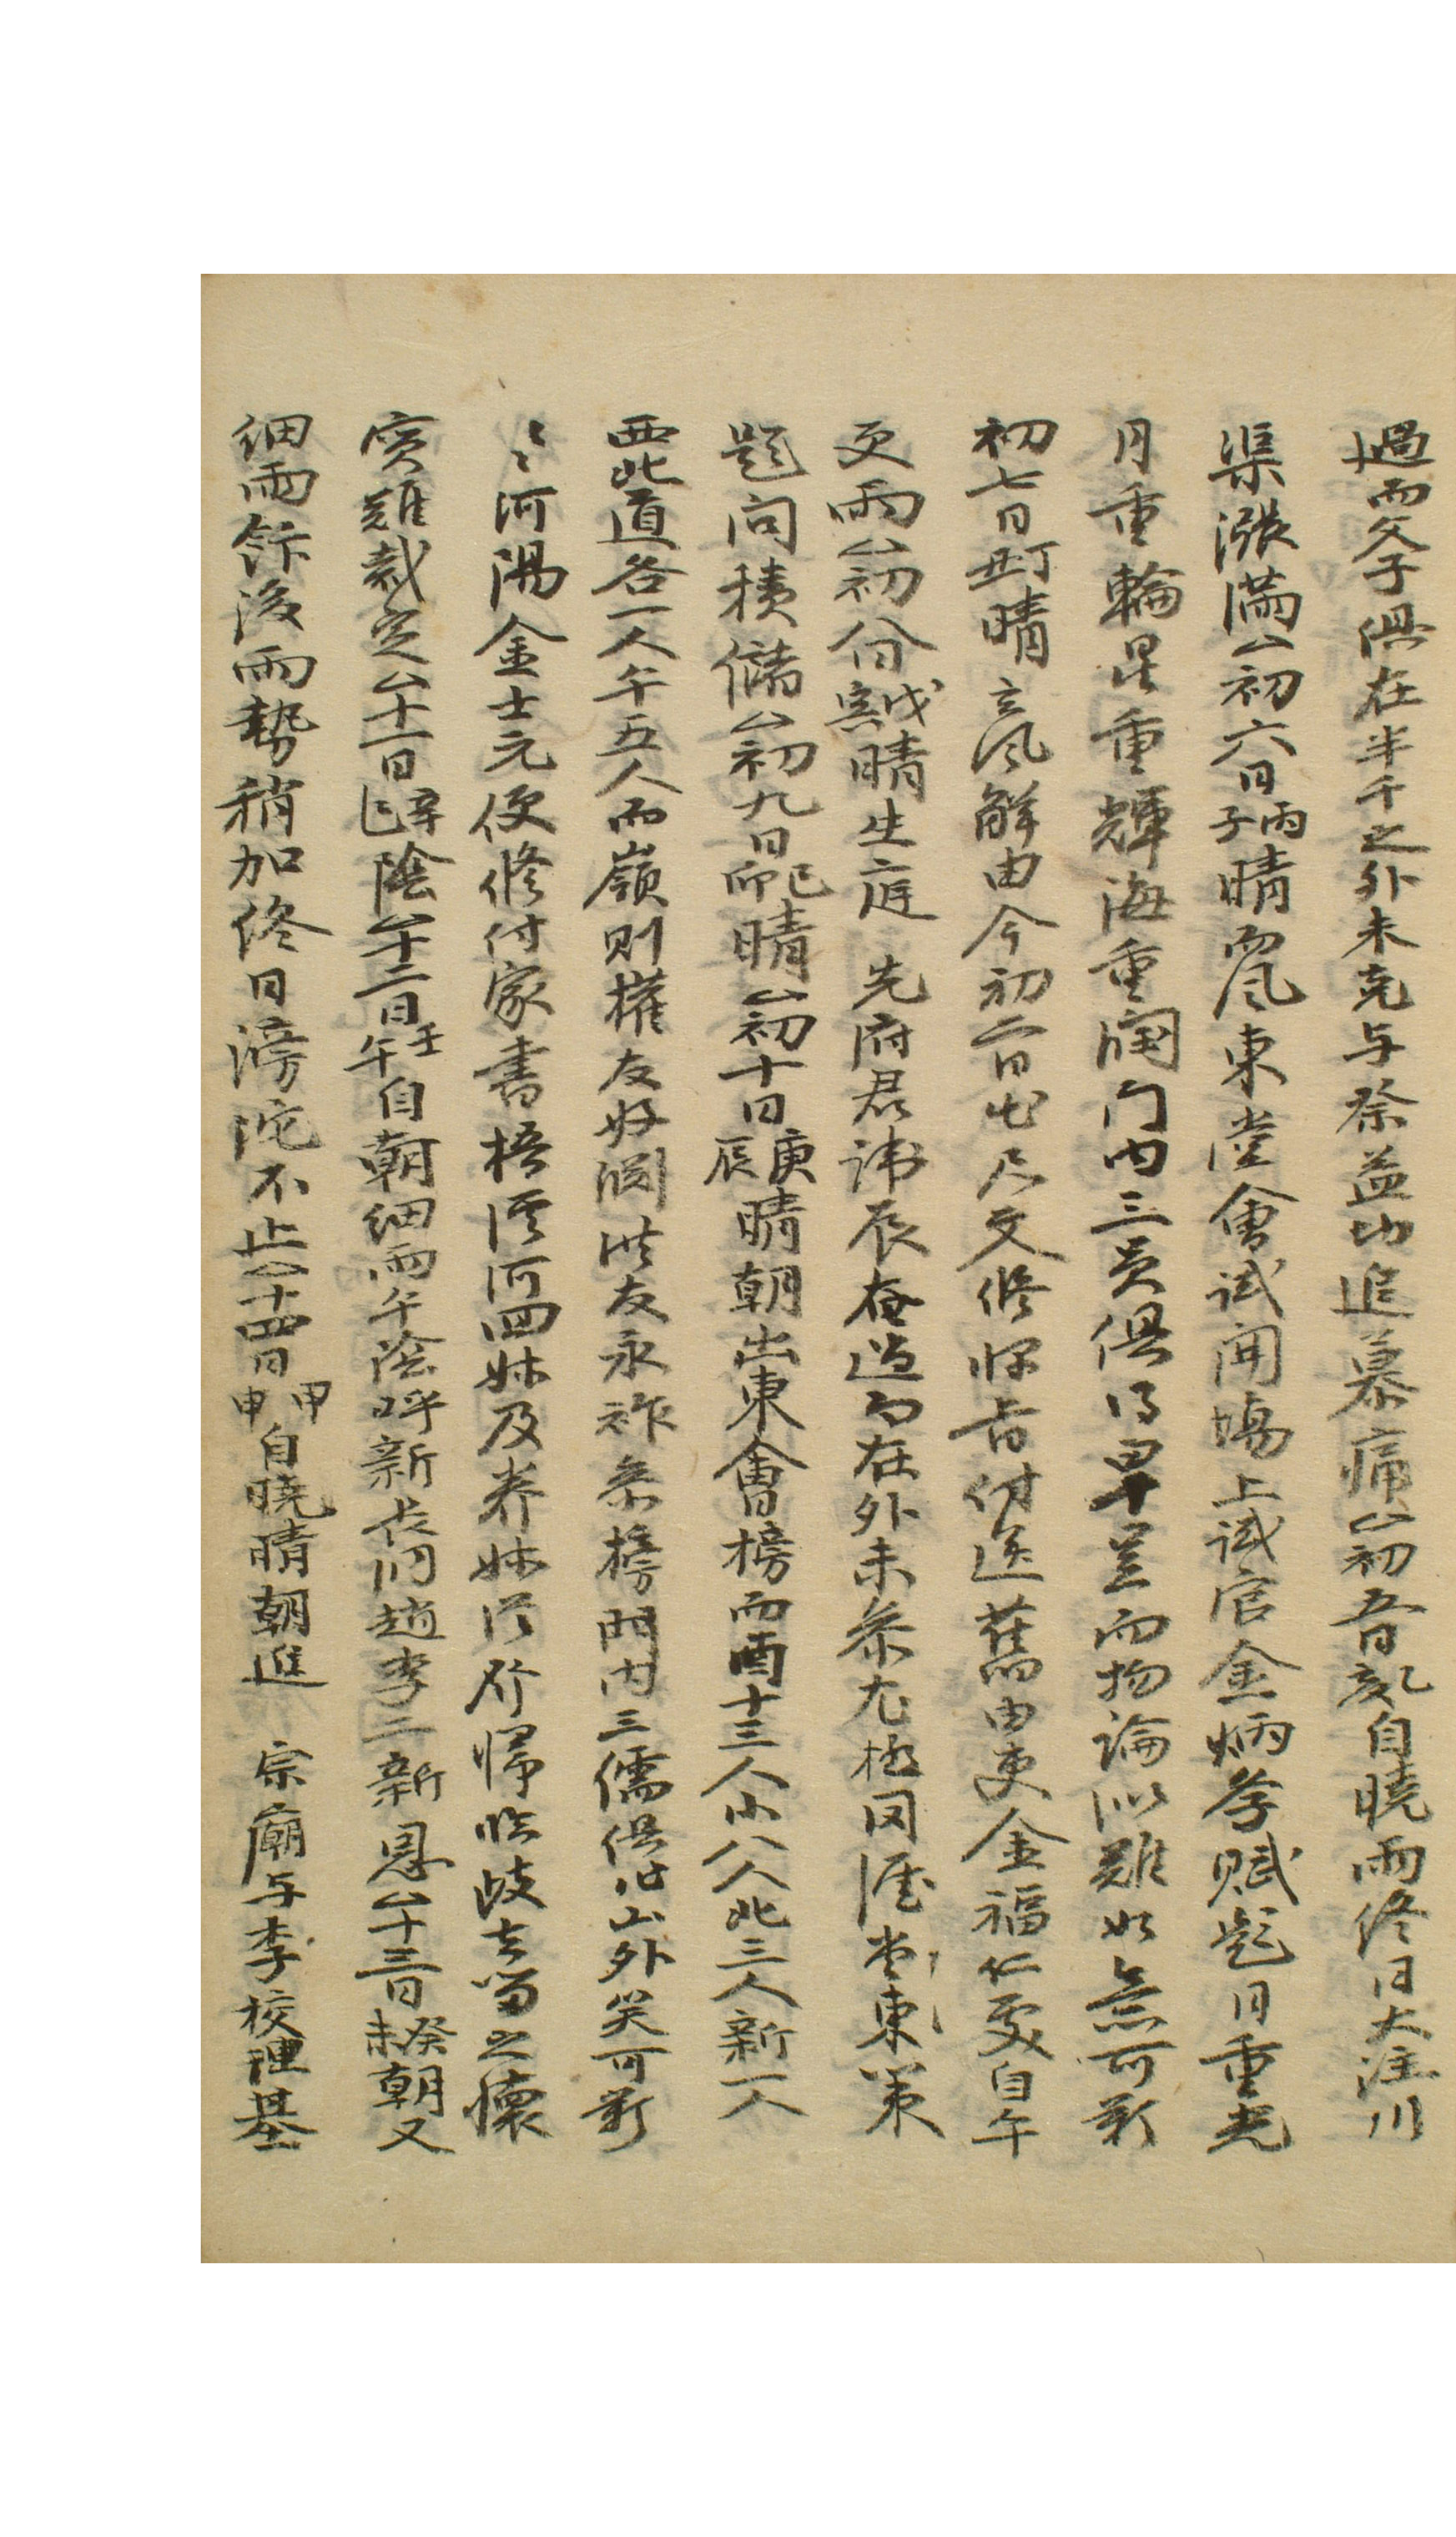 過而父子俱在半千之外未克与祭益切追慕痛△初五日乙亥自曉雨終日大注川
渠漲滿△初六日丙子晴而風東堂會試開場上試官金炳學賦題日重光
月重輪星重輝海重潤門內三員俱得早呈而物論似難必無可歎
初七日丁丑晴立風解由今初二日出尺文修啓付送舊由吏金福仁處自午
更雨△初八日戊寅晴生庭 先府君諱辰奄過而在外未參尤極罔涯東策
題問積儲△初九日己卯晴△初十日庚辰晴朝出東會榜而酉十三人小八人北三人新一人
西北道各一人午五人而嶺則權友好淵洪友永祚參榜門內三儒俱屈山外矣可歎
〻〻河陽金士元便修付家書梧溪河四妹及養妹行歸臨歧去留之懷
實難裁定△十一日辛巳陰△十二日壬午自朝細雨午陰呼新長門趙李二新恩△十三日癸未朝又
細雨飯後雨勢稍加終日滂沱不止△十四日甲申自曉晴朝進 宗廟与李校理基